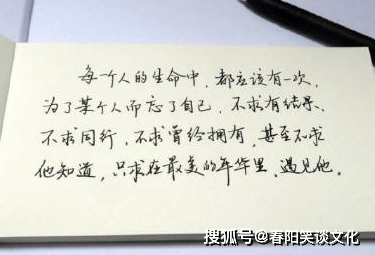 每一个人的生命中，都应该有一次，
为了某个人而忘了自己，不求有结果，
不求同行，不求曾经拥有，甚至不求
他知道，只求在最美的年华里，遇见他。
搜狐号@春阳笑谈文化